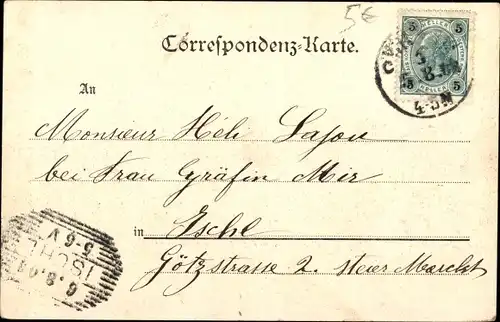 5€
Correspondenz-Karte.
5 HELLER 5
5 HELLER 5
GMU
8
4-5N
An
Monsieur Héli Lajou
bei Frau Gräfin Mir
in Ischl
Götzstrasse 2.
ISCHL
5-6 V
6.8.01